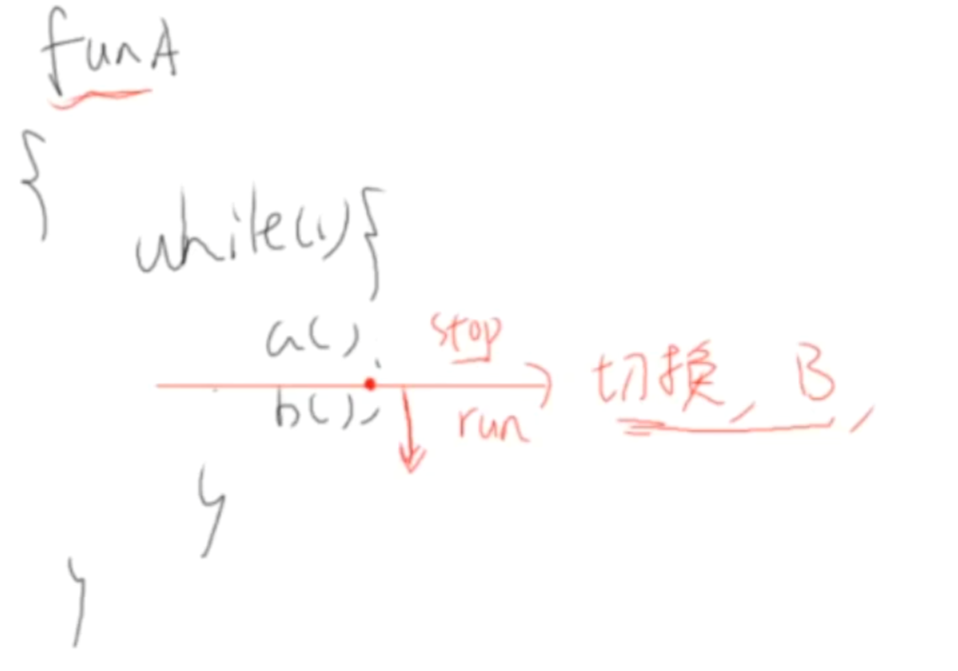 funA
{
while(1){
a();
stop
切换, B,
b();
run
}
}